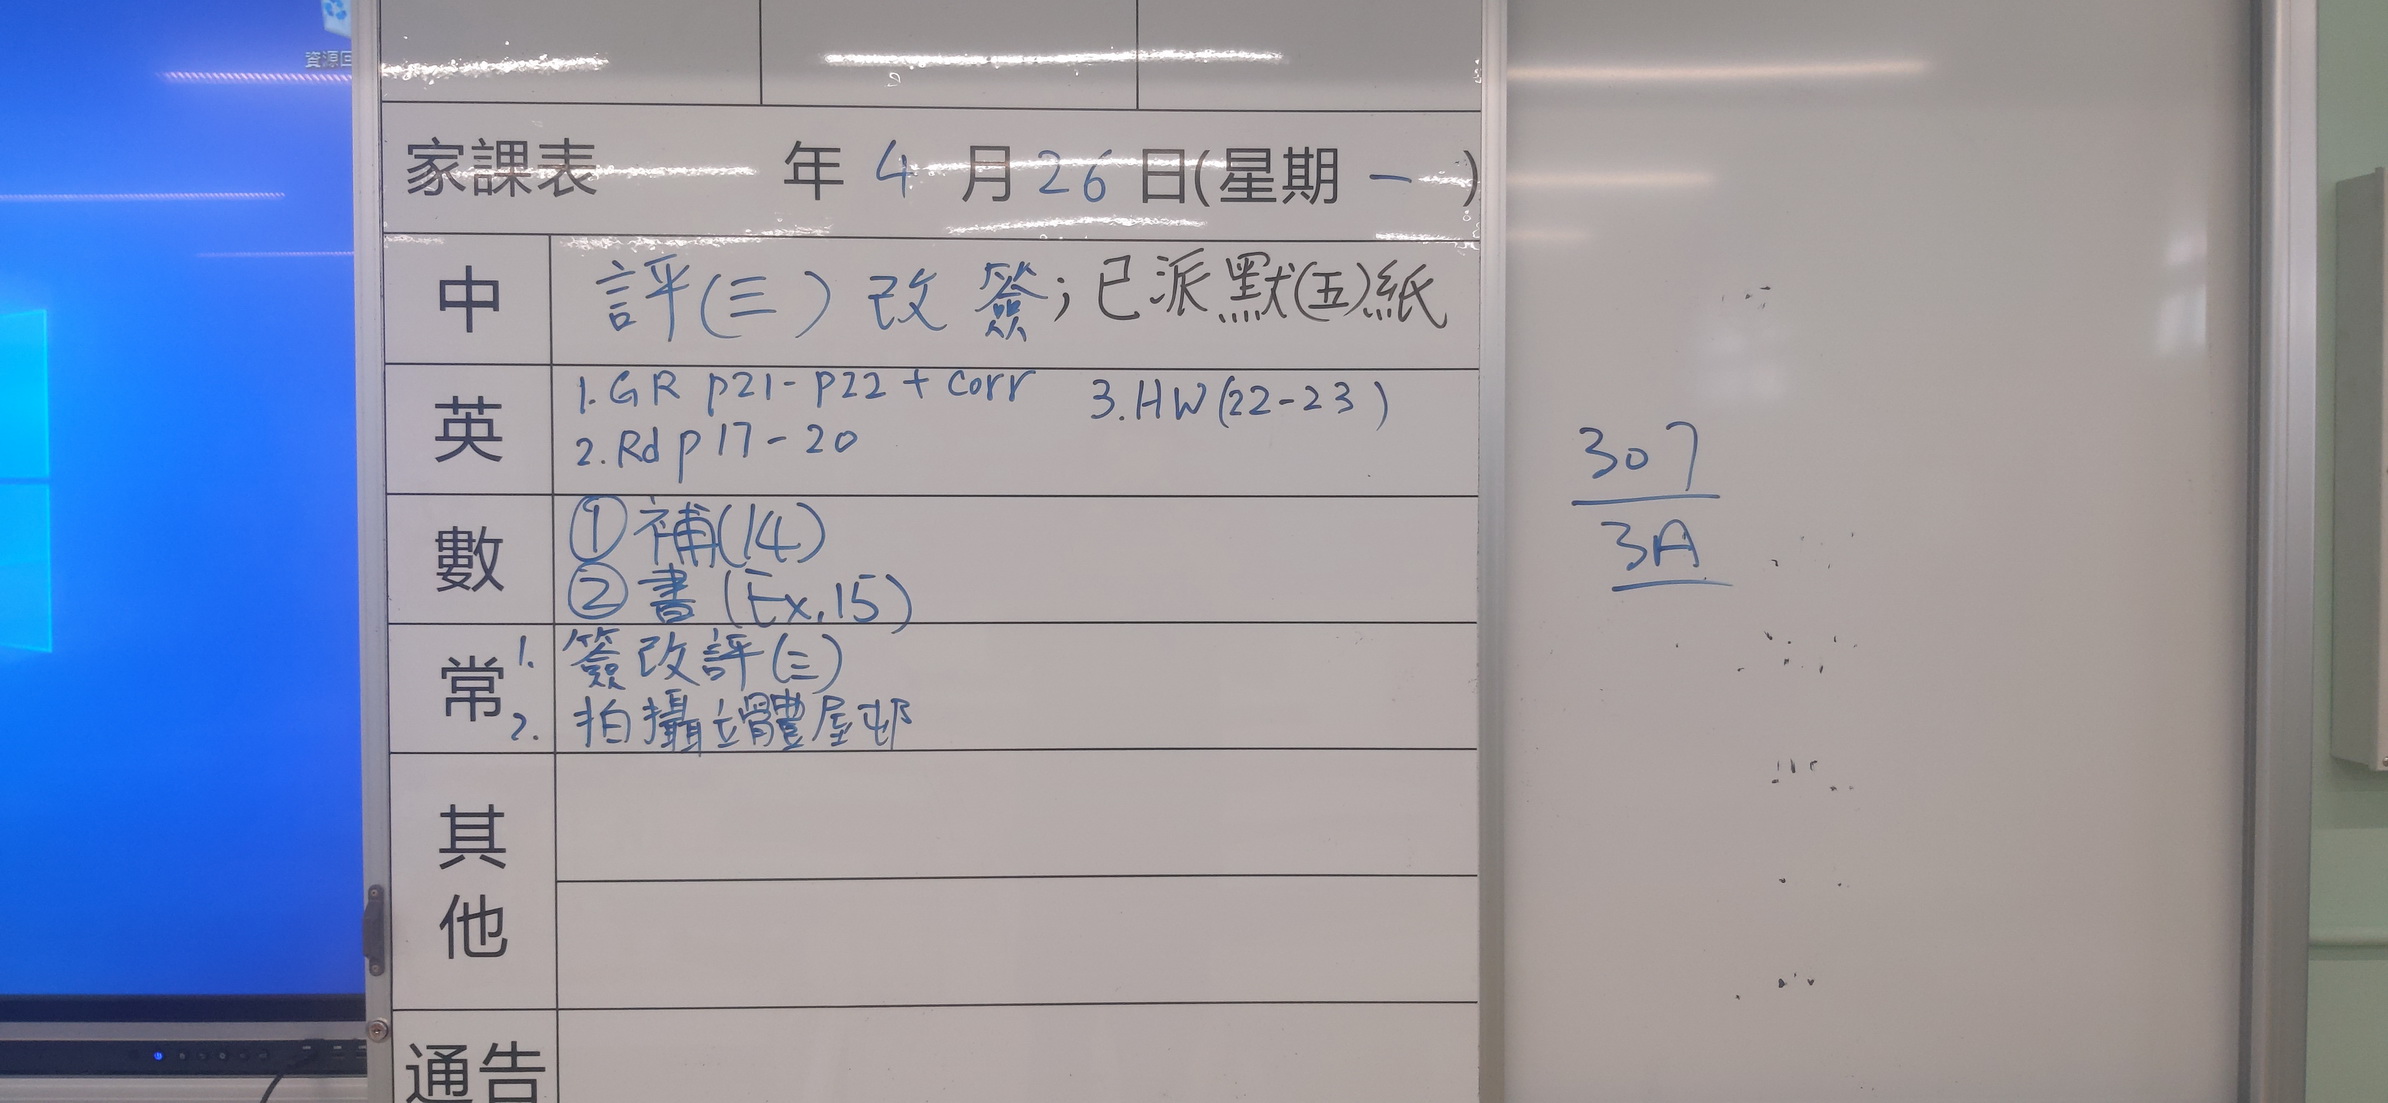 資源回
家課表 年 4 月 26 日(星期 一 )
中 評(三)改簽；已派默(五)紙
英 1. GR p21-p22 + corr 3. HW(22-23)
2. Rd p17-20
數 ① 補(14)
② 書(Ex.15)
常 1. 簽改評(三)
2. 拍攝立體屋邨
其他
通告
307
3A